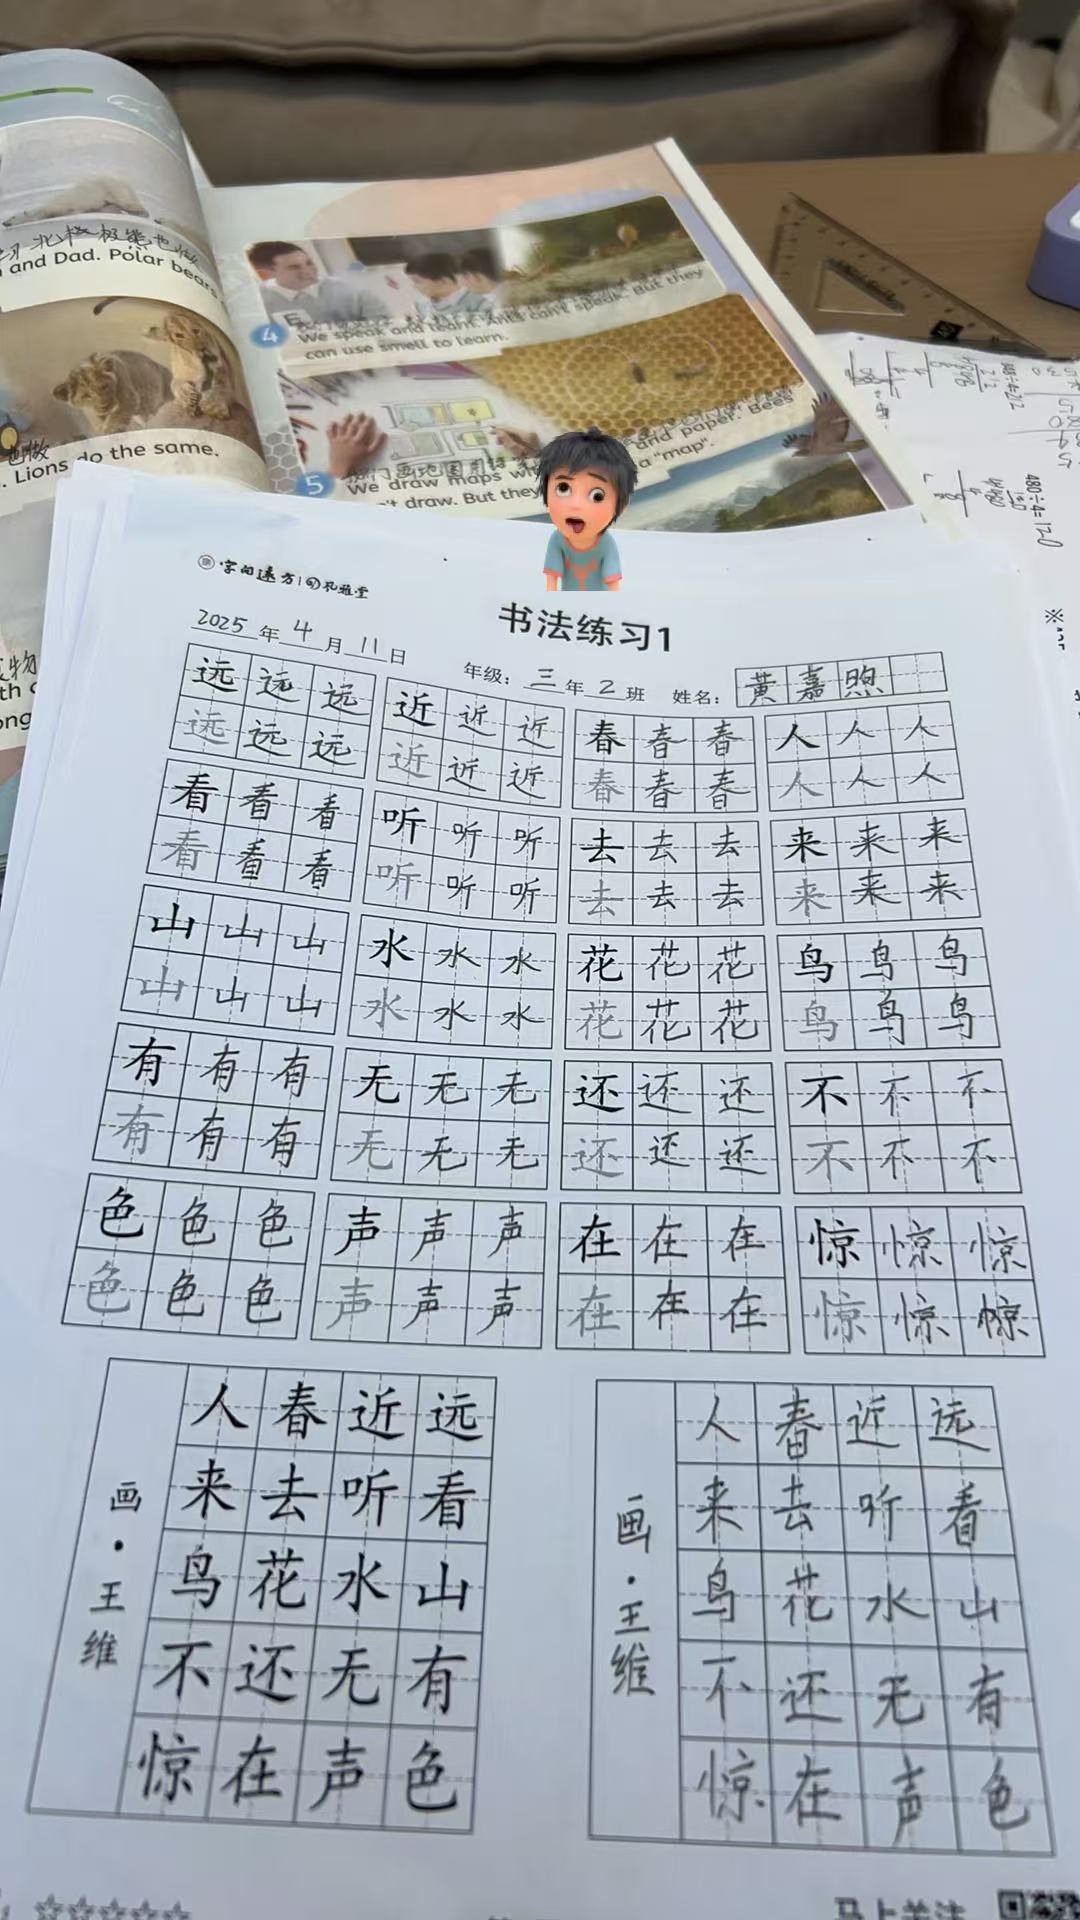 and Dad. Polar bears
Lions do the same.
4
We speak and learn. Ants can't speak. But they
can use smell to learn.
5
We draw maps
and paper. Bees
't draw. But they
a "map".
书法练习1
2025年4月11日 年级：三年2班 姓名：黄嘉煦
远远远 近近近 春春春 人人人
远远远 近近近 春春春 人人人
看看看 听听听 去去去 来来来
看看看 听听听 去去去 来来来
山山山 水水水 花花花 鸟鸟鸟
山山山 水水水 花花花 鸟鸟鸟
有有有 无无无 还还还 不不不
有有有 无无无 还还还 不不不
色色色 声声声 在在在 惊惊惊
色色色 声声声 在在在 惊惊惊
远看山有色
近听水无声
春去花还在
人来鸟不惊
画·王维
远看山有色
近听水无声
春去花还在
人来鸟不惊
画·王维
马上关注